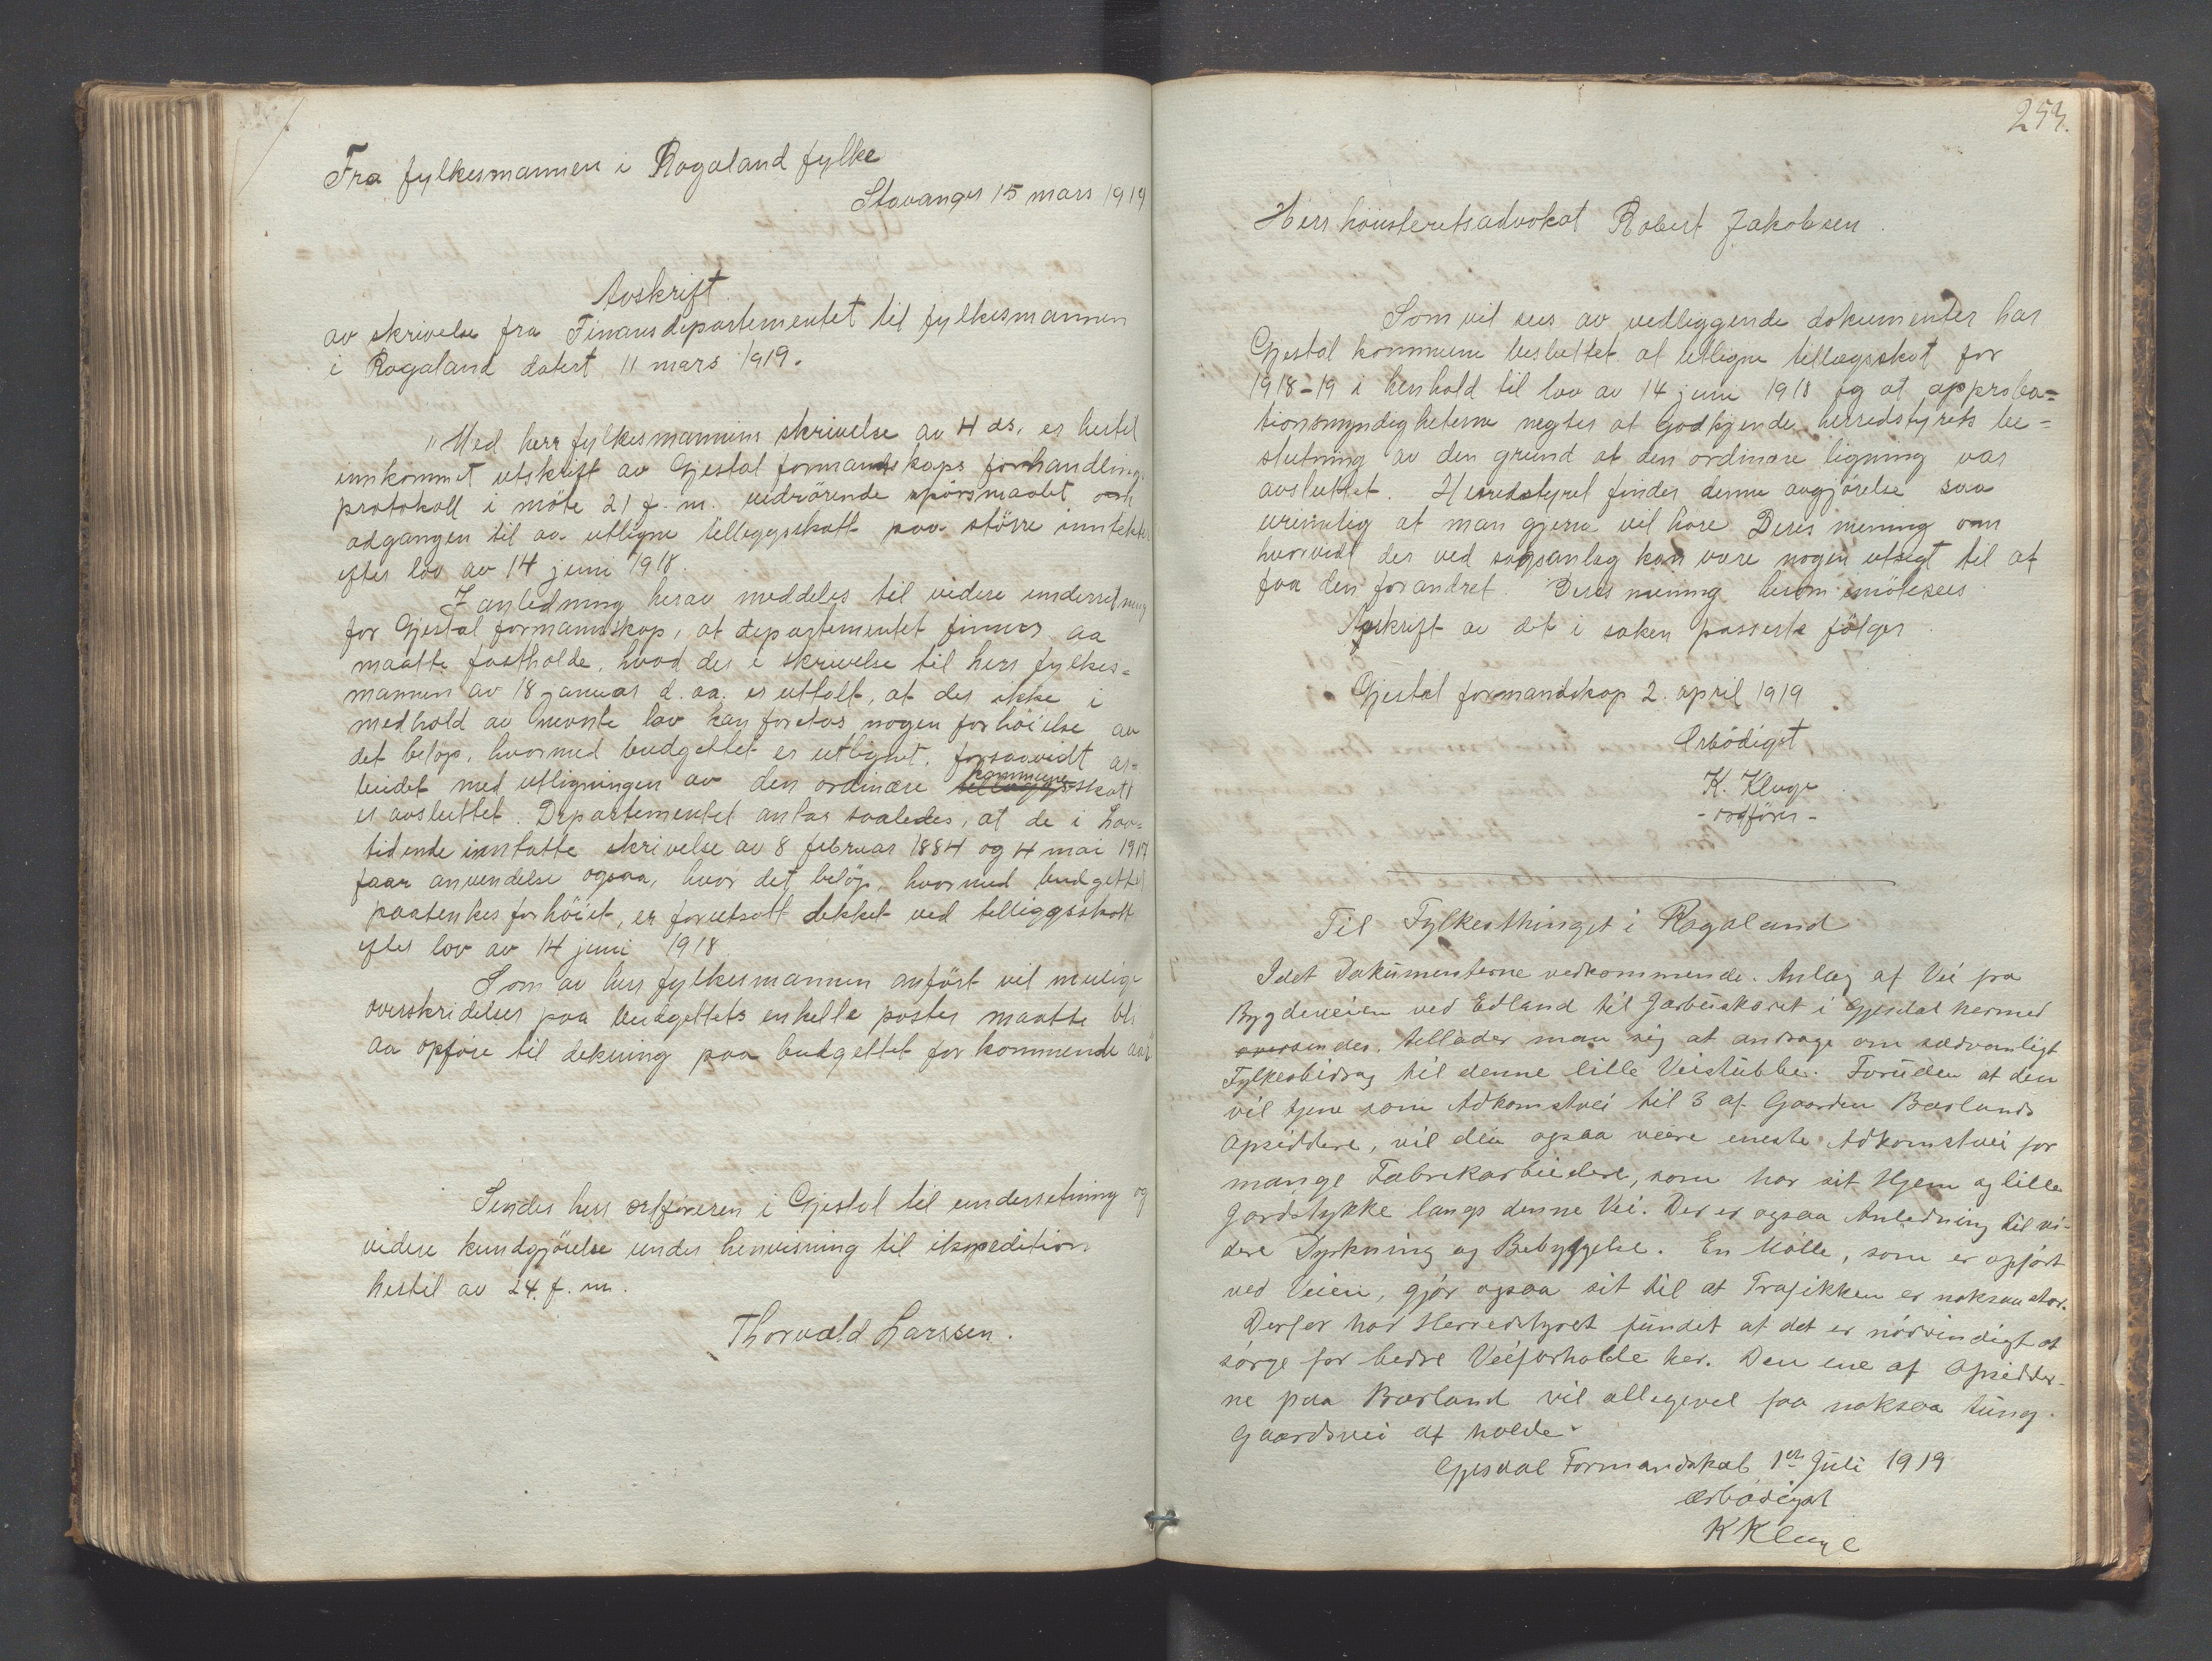 Fra fylkesmannen i Rogaland fylke
Stavanger 15 mars 1919
Avskrift
av skrivelse fra Finansdepartementet til fylkesmannen
i Rogaland datert 11 mars 1919.
"Med herr fylkesmannens skrivelse av 4 ds. er hertil
innkommet utskrift av Gjestal formandskaps forhandlings
protokoll i möte 21 f. m. vedrörende spörsmaalet om
adgangen til aa utligne tilleggskatt paa större inntekter
efter lov av 14 juni 1918.
I anledning herav meddeles til videre underretning
for Gjestal formannskap, at departementet finner aa
maatte fastholde, hvad der i skrivelse til herr fylkes=
mannen av 18 januar d. aa. er uttalt, at der ikke i
medhold av nevnte lov kan foretas nogen forhöielse av
det belöp, hvormed budgettet er utlignet, forsaavidt ar=
beidet med utligningen av den ordinære kommuneskatt
er avsluttet. Departementet antar saaledes, at de i Lov=
tidende inntatte skrivelse av 8 februar 1884 og 4 mai 1917
faar anvendelse ogsaa, hvor det belöp, hvormed budgettet
paatenkes forhöiet, er forutsatt dekket ved tilleggsskatt
efter lov av 14 juni 1918
Som av herr fylkesmannen anfört vil mulige
overskridelser paa budgettets enkelte poster maatte bli
aa opföre til dekning paa budgettet for kommende aar
Sendes herr ordföreren i Gjestal til underretning og
videre kundgjörelse under henvisning til ekspedition
hertil av 24. f. m.
Thorvald Larssen.
253.
Herr höiesteretsadvokat Robert Jakobsen.
Som vil sees av vedliggende dokumenter har
Gjestal kommune besluttet at utligne tillægsskat for
1918-19 i henhold til lov av 14 juni 1918 og at approba=
tionsmyndigheterne negter at godkjende herredstyrets be=
slutning av den grund at den ordinære ligning var
avsluttet. Herredstyret finder denne avgjörelse saa
urimelig at man gjerne vil höre Deres mening om
hvorvidt der ved sagsanlæg kan være nogen utsigt til at
faa den forandret. Deres mening herom imötesees
Avskrift av det i saken passerte fölger.
Gjestal formandskap 2. april 1919
Ærbödigst
K. Kluge
- ordförer -
Til Fylkesthinget i Rogaland
Idet Dokumenterne vedkommende. Anlæg af Vei fra
Bygdeveien ved Edland til Jarbeiskaret i Gjesdal hermed
oversendes, tillader man sig at andrage om sædvanligt
Fylkesbidrag til denne lille Veistubbe. Foruden at den
vil tjene som Adkomstvei til 3 af Gaarden Bærlands
Opsiddere, vil den ogsaa være eneste Adkomstvei for
mange Fabrikarbeidere, som har sit Hjem og lille
Jordstykke langs denne Vei. Der er ogsaa Anledning til vi-
dere Dyrkning og Bebyggelse. En Mölle, som er opfört
ved Veien, gjör ogsaa sit til at Trafikken er noksaa stor.
Derfor har Herredstyret fundet at det er nödvendigt at
sörge for bedre Veiforholde her. Den ene af Opsidder-
ne paa Bærland vil allegevel faa noksaa tung
Gaardsvei at holde.
Gjesdal Formandskab 1en Juli 1919
Ærbödigst
K Kluge